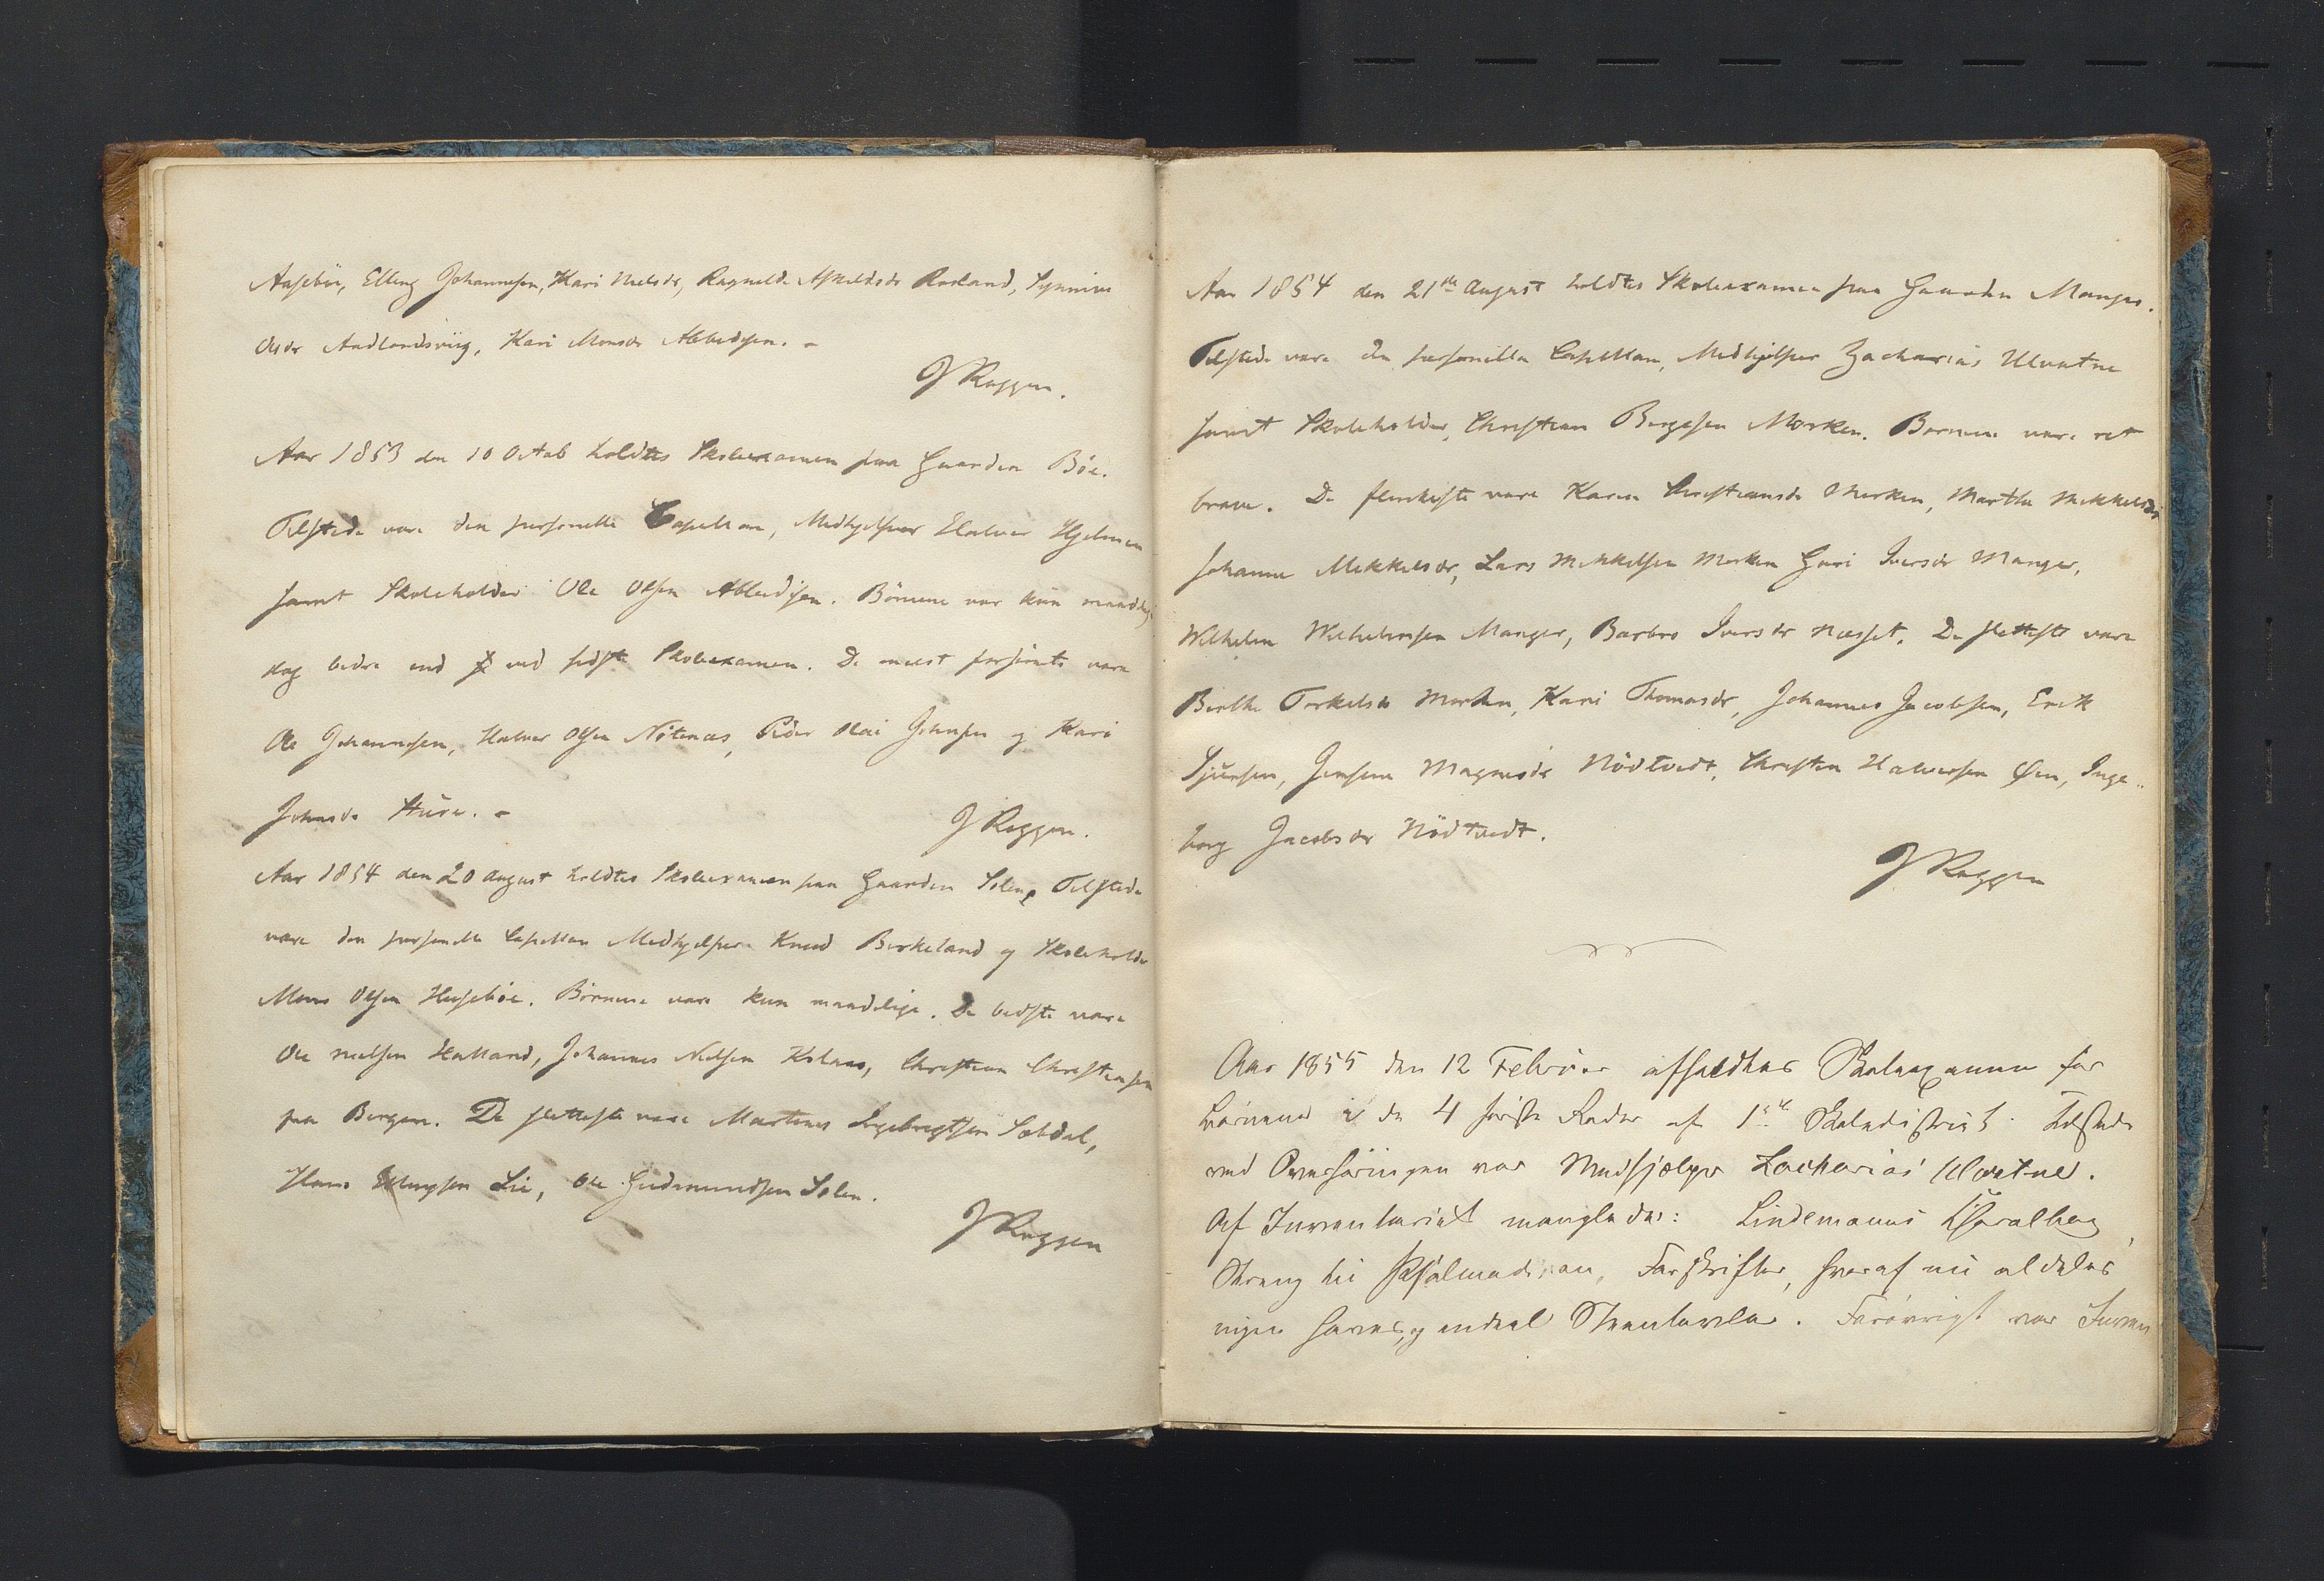 Aasebøe, Elling Johannesen, Kari Nielsdr, Ragnilde Askildsdr Rosland, Synnive
Olsdr Aadlandsviig, Kari Monsdr Abbedisen. -
J Roggen.
Aar 1853 den 10 Octob holdtes Skoleexamen paa Gaarden Böe.
Tilstede vare den personelle Capellan, Medhjelper Halvor Hjelmen
samt Skoleholder Ole Olsen Abbedisen. Börnene var kun maadelige
dog bedre end ved sidste Skoleexamen. De meest forsömte vare
Ole Johannesen, Halvor Olsen Nötenæs, Peder Olai Johnsen og Kari
Johnsdr Stüre. -
J Roggen.
Aar 1854 den 20 August holdtes Skoleexamen paa Gaarden Solem, Tilstede
vare den personelle Capellan Medhjelper Knud Birkeland og Skoleholder
Mons Olsen Husebøe. Börnene vare kun maadelige. De bedste vare
Ole Nielsen Halland, Johannes Nielsen Kolaas, Christian Christensen
paa Bergen. De sletteste vare Martinus Ingebrigtsen Sætdal,
Hans Ellingsen Lie, Ole Gudmundsen Solem.
J Roggen
Aar 1854 den 21de August holdtes Skoleexamen paa Gaarden Manger.
Tilstede vare den personelle Capellan, Medhjelper Zacharias Ulvatne
samt Skoleholder, Christian Børgesen Morken. Børnene vare ret
brave. De flinkeste vare Karen Christiansdr Morken, Martha Mikkelsdr
Johanne Mikkelsdr, Lars Mikkelsen Morken Guri Iversdr Manger,
Wilhelm Wilhelmsen Manger, Barbro Iversdr Næsset. De sletteste vare
Birthe Torkelsdr Morken, Kari Thomasdr, Johannes Jacobsen, Erik
Sjursen, Jensine Magnesdr Nödtvedt, Christen Halvorsen Øen, Inge-
borg Jacobsdr Nödtvedt.
J Roggen
Aar 1855 den 12 Februar afholdtes Skoleexamen for
Børnene i de 4 første Roder af 1ste Skoledistrict. Tilstede
ved Overhøringen var Medhjælper Zacharias Ulvatne.
Af Inventariet manglede: Lindemanns Choralbog,
Streng til Psalmodikon, Forskrifter, hvoraf nu aldeles
ingen haves, og endeel Steentavler. Forøvrigt var Inven